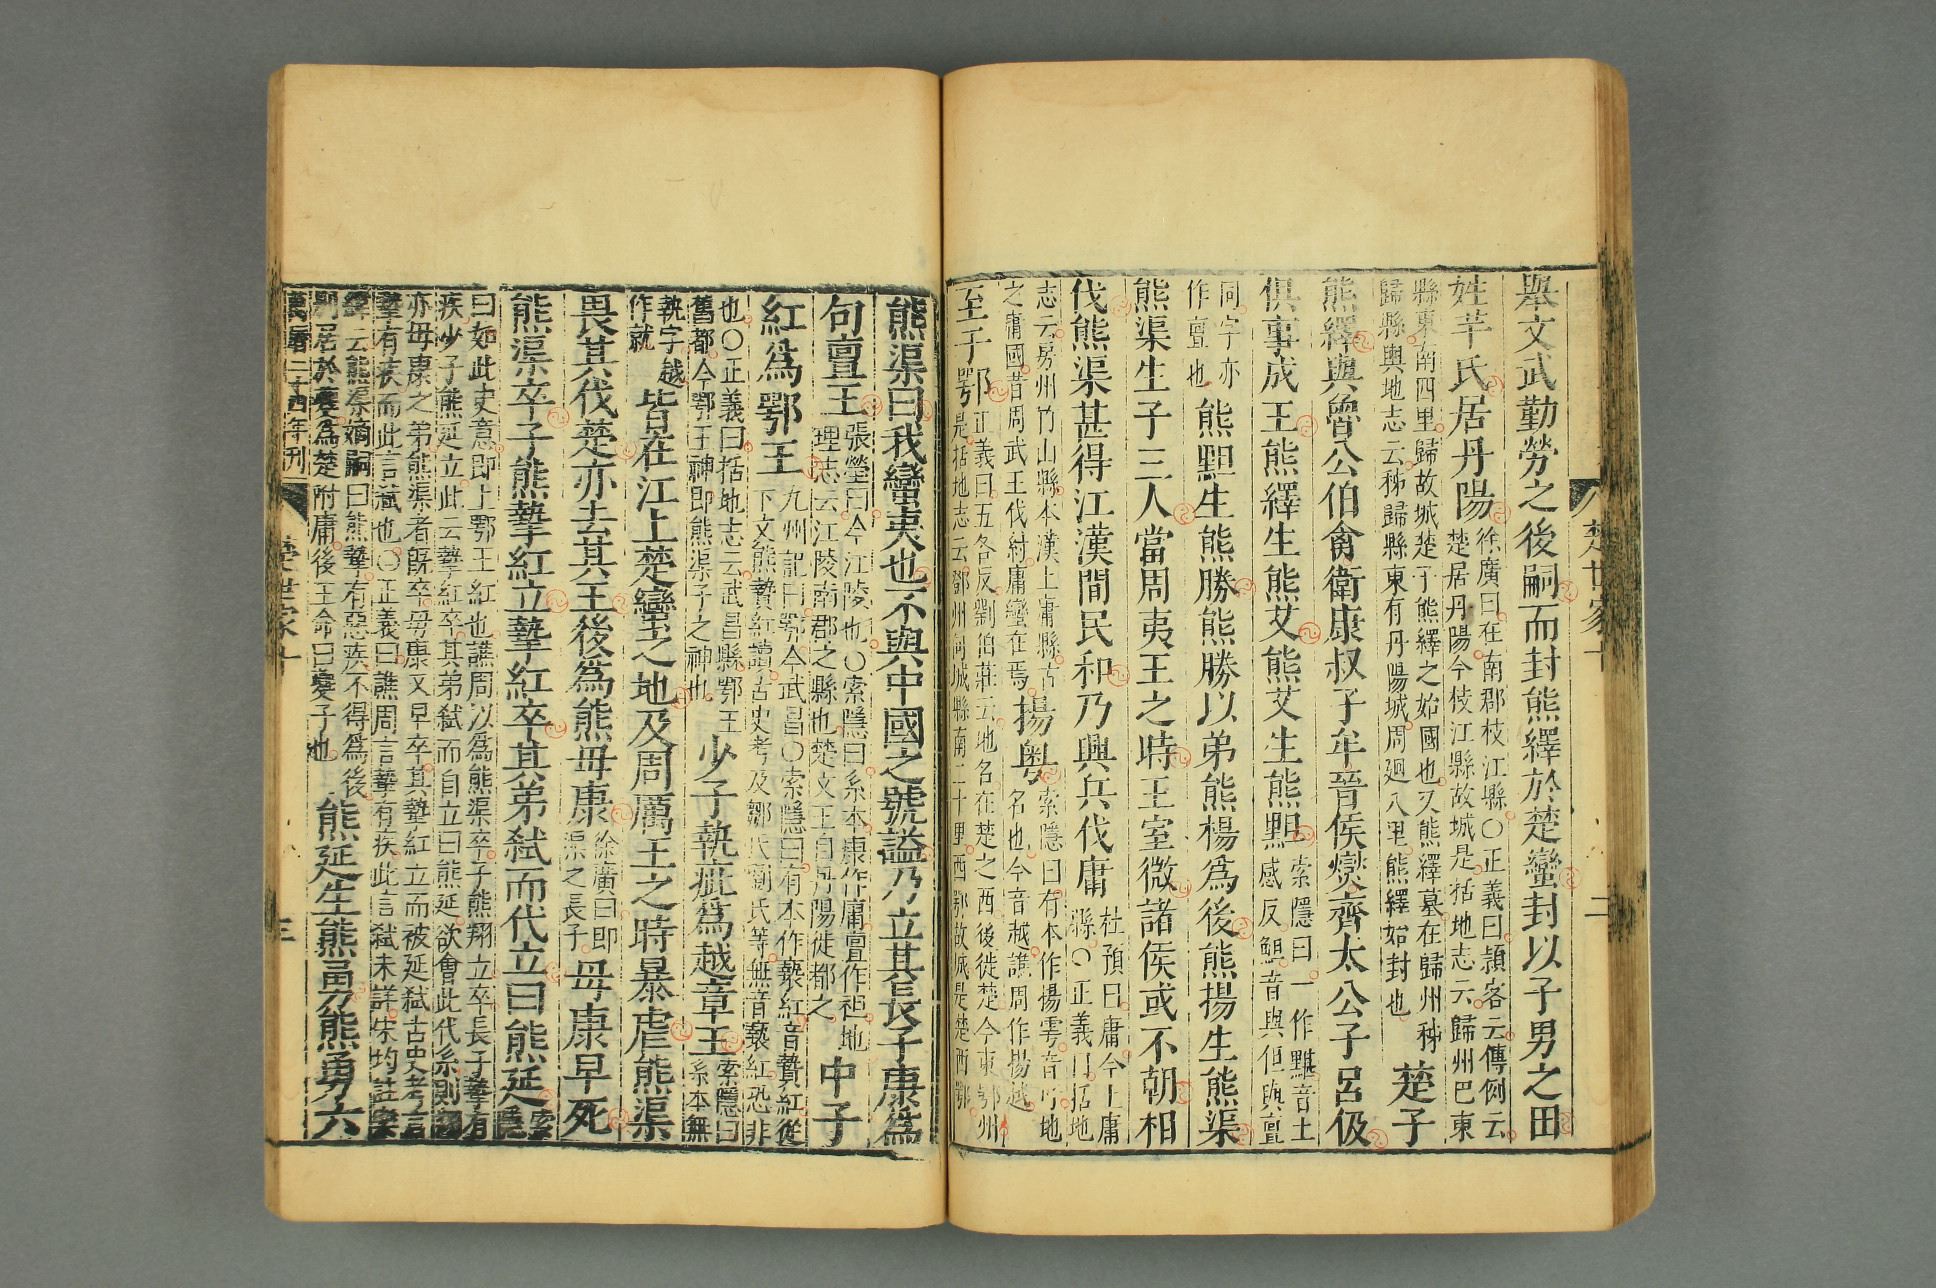 舉文武勤勞之後嗣而封熊繹於楚蠻封以子男之田
姓芊氏居丹陽
徐廣曰在南郡枝江縣○正義曰頴客云傳例云
楚居丹陽今枝江縣故城是括地志云歸州巴東
縣東南四里歸故城楚子熊繹之始國也又熊繹墓在歸州秭
歸縣輿地志云秭歸縣東有丹陽城周廻八里熊繹始封也
楚子
熊繹與魯公伯禽衛康叔子牟晉侯燮齊太公子呂伋
俱事成王熊繹生熊艾熊艾生熊䵣
索隱曰一作黮音土
感反䵣音與但與亶
同字亦
作亶也
熊䵣生熊勝熊勝以弟熊楊爲後熊揚生熊渠
熊渠生子三人當周夷王之時王室微諸侯或不朝相
伐熊渠甚得江漢間民和乃興兵伐庸
杜預曰庸今上庸
縣○正義曰括地
志云房州竹山縣本漢上庸縣古
之庸國昔周武王伐紂庸蠻在焉
揚粤
索隱曰有本作揚雩音吁地
名也今音越譙周作揚越
至于鄂
正義曰五各反劉伯莊云地名在楚之西後徙楚今東鄂州
是括地志云鄧州向城縣南二十里西鄂故城是楚西鄂
楚世家十
二
熊渠曰我蠻夷也不與中國之號謚乃立其長子康爲
句亶王
張瑩曰今江陵也○索隱曰系本康作庸亶作袒地
理志云江陵南郡之縣也楚文王自丹陽徙都之
中子
紅爲鄂王
九州記曰鄂今武昌○索隱曰有本作藝紅音贄紅從
下文熊贄紅讀古史考及鄒氏劉氏等無音藝紅恐非
也○正義曰括地志云武昌縣鄂王
舊都今鄂王神即熊渠子之神也
少子執疵爲越章王
索隱曰
系本無
執字越
作就
皆在江上楚蠻之地及周厲王之時暴虐熊渠
畏其伐楚亦去其王後爲熊毋康
徐廣曰即
渠之長子
毋康早死
熊渠卒子熊摯紅立摯紅卒其弟弑而代立曰熊延
曰如此史意即上鄂王紅也譙周以爲熊渠卒子熊翔立卒長子摯有
疾少子熊延立此云摯紅卒其弟弑而自立曰熊延欲會此代系則
亦毋康之弟熊渠者旣卒毋康又早卒其摯紅立而被延弑古史考言
摯有疾而此言弑也○正義曰譙周言摯有疾此言弑未詳宋均註樂
緯云熊渠嫡嗣曰熊摯有惡疾不得爲後
別居於夔爲楚附庸後王命曰夔子也
熊延生熊勇熊勇六
萬曆二十四年刊
楚世家十
三